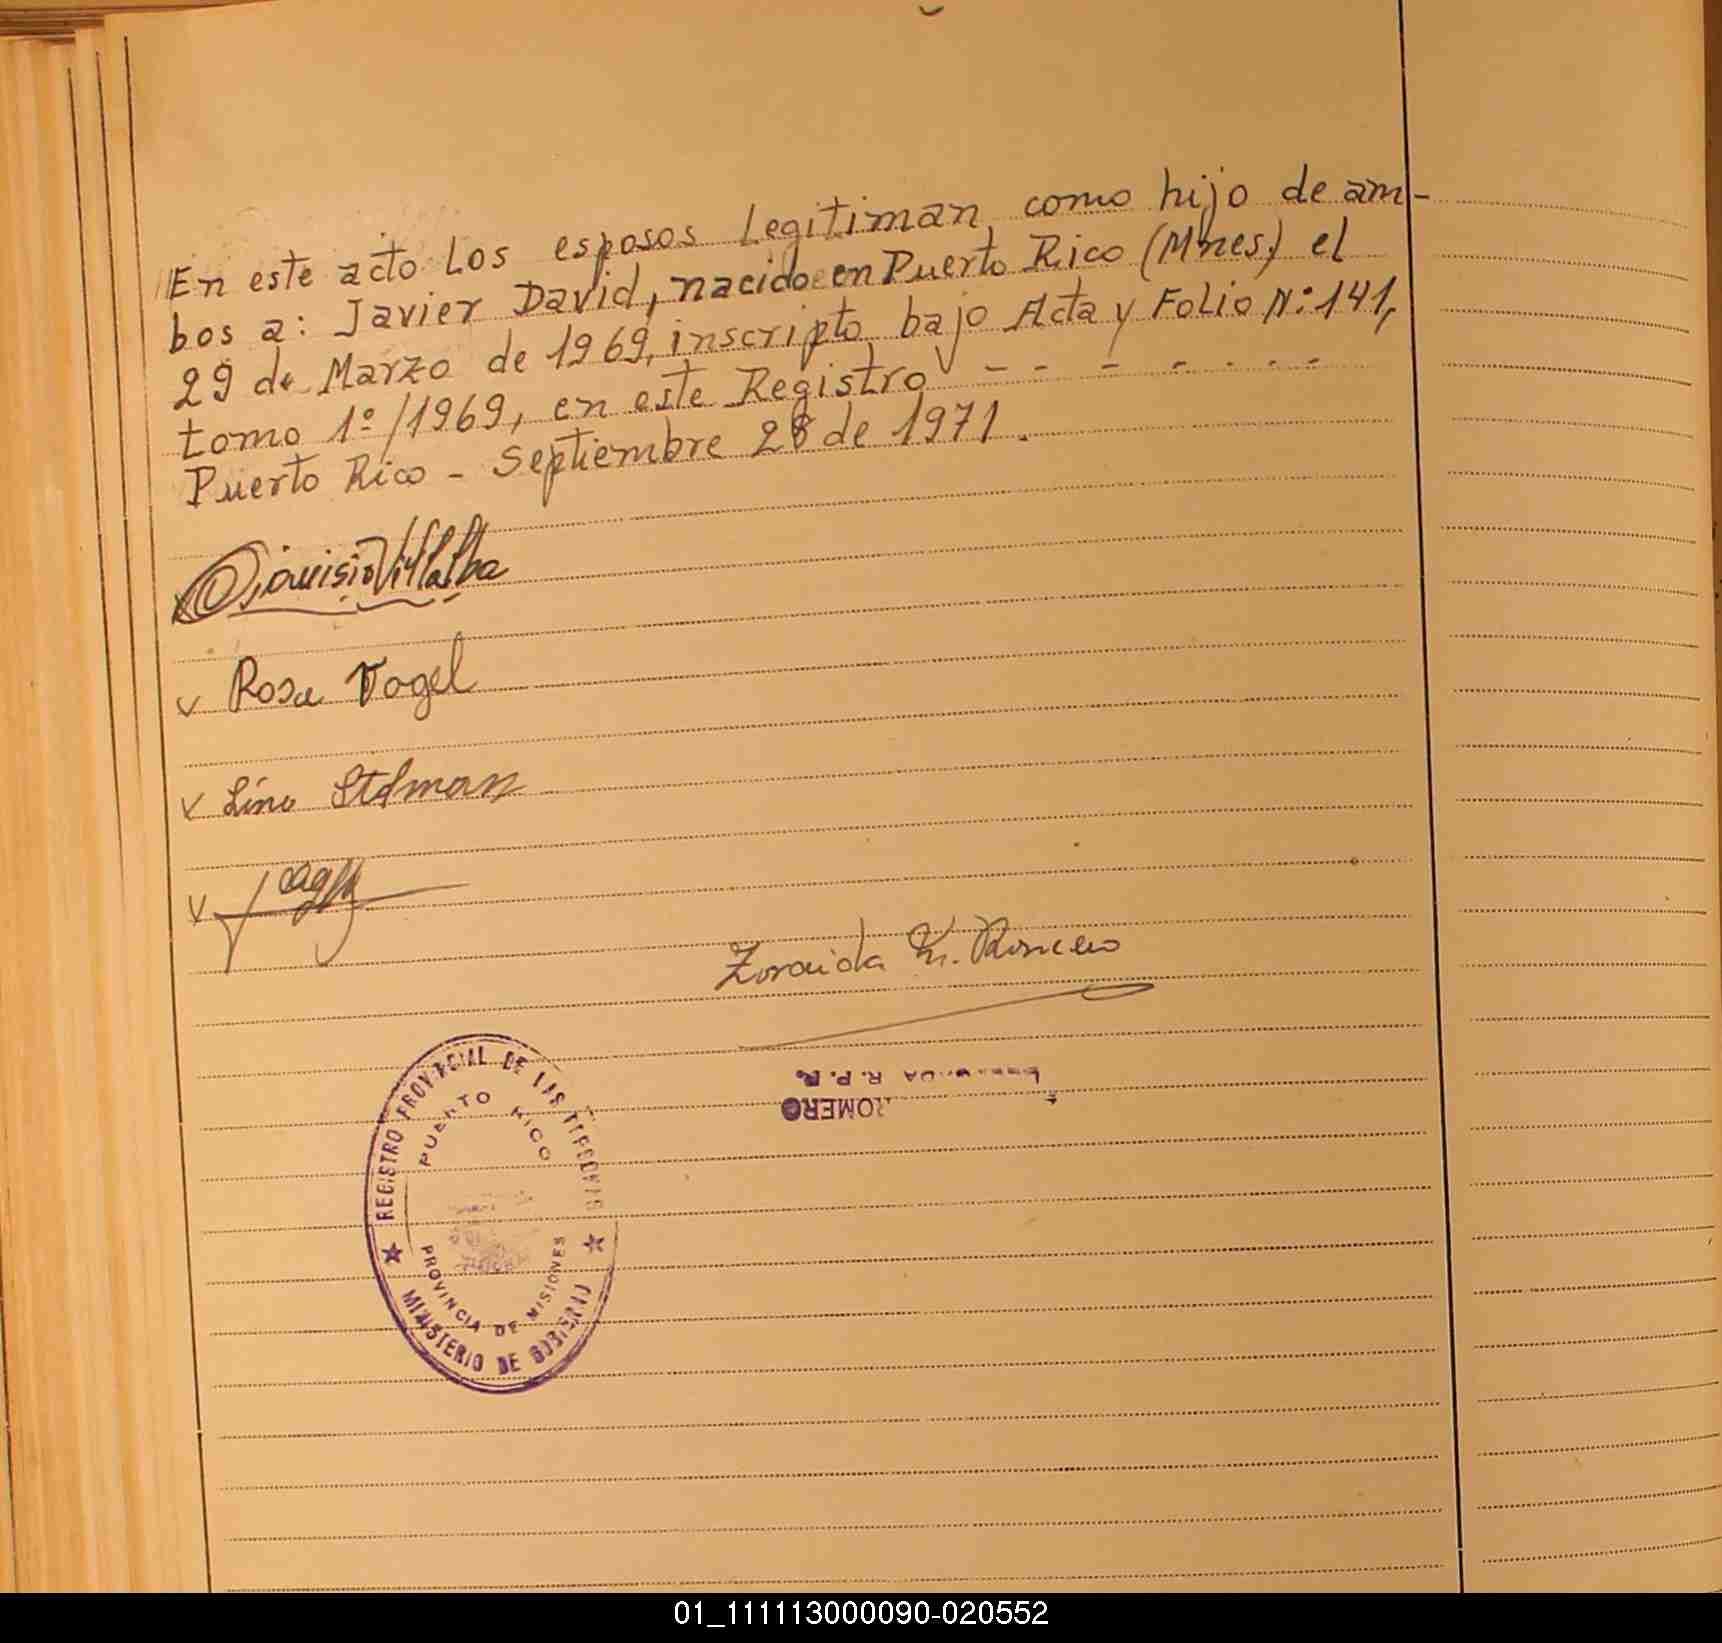 En este acto Los esposos Legitiman como hijo de am-
bos a: Javier David, nacido en Puerto Rico (Mnes) el
29 de Marzo de 1969, inscripto bajo Acta y Folio N: 141,
tomo 1º/1969, en este Registro - - - - - - - -
Puerto Rico - Septiembre 28 de 1971.
Dionisio Villalba
v Rosa Vogel
v Lino Stelman
v
Zoraida K. Romero
R. P. P.
ROMERO
REGISTRO PROVINCIAL DE LAS PERSONAS
PUERTO RICO
PROVINCIA DE MISIONES
MINISTERIO DE GOBIERNO
01_111113000090-020552